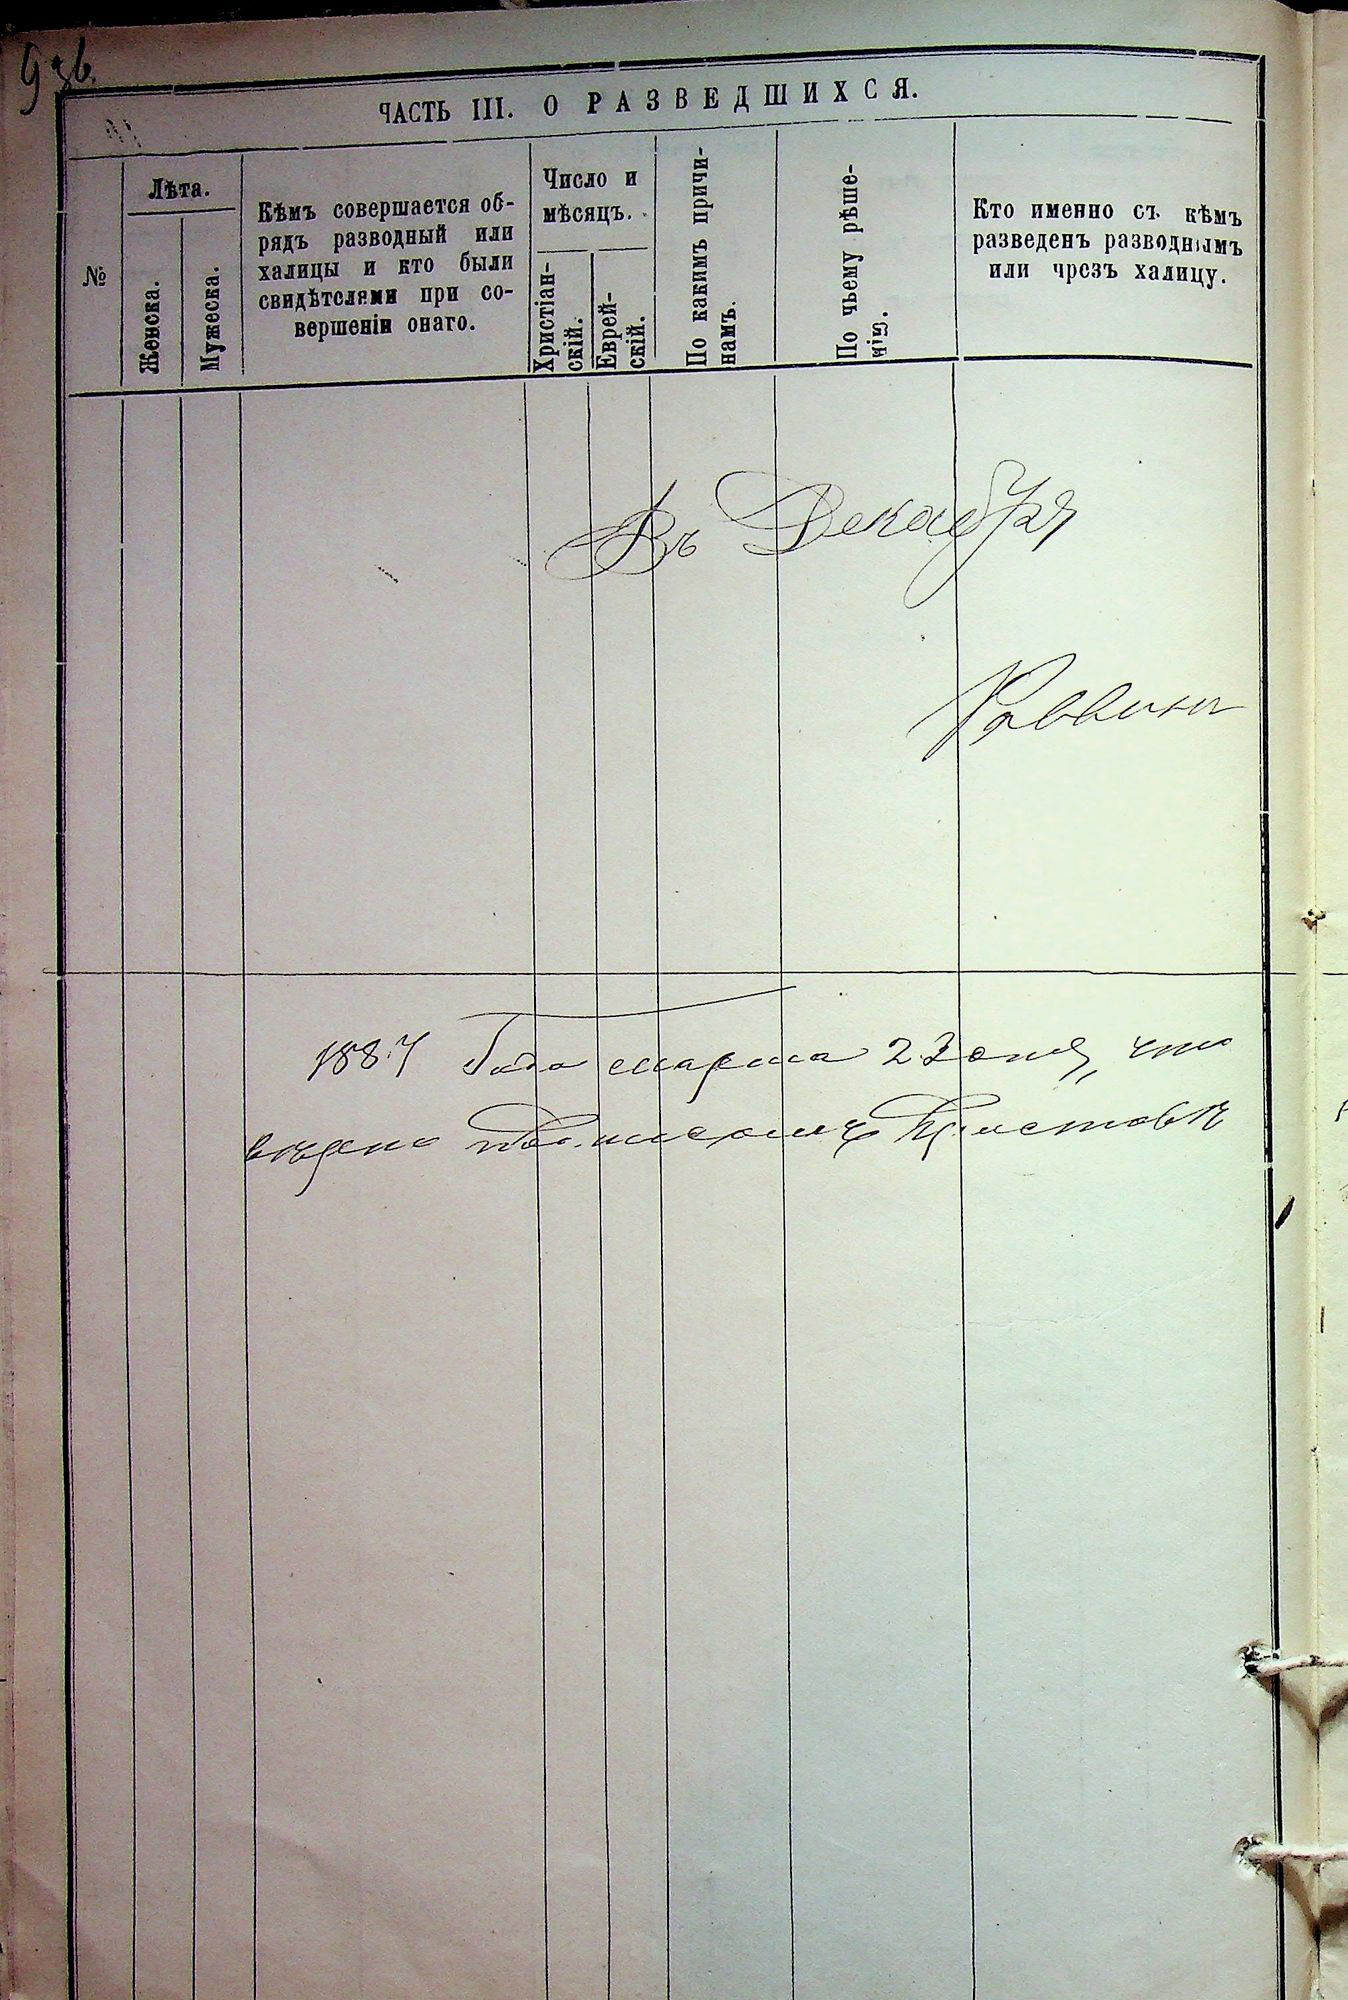 93б.
ЧАСТЬ III. О РАЗВЕДШИХСЯ.
№
Лѣта.
Женска.
Мужеска.
Кѣмъ совершается об-
рядъ разводный или
халицы и кто были
свидѣтелями при со-
вершеніи онаго.
Число и
мѣсяцъ.
Христіан-
скій.
Еврей-
скій.
По какимъ причи-
намъ.
По чьему рѣше-
нію.
Кто именно съ кѣмъ
разведенъ разводнымъ
или чрезъ халицу.
Въ Декабря
Раввинъ
1887 Года марта 23 дня, что
вѣрено